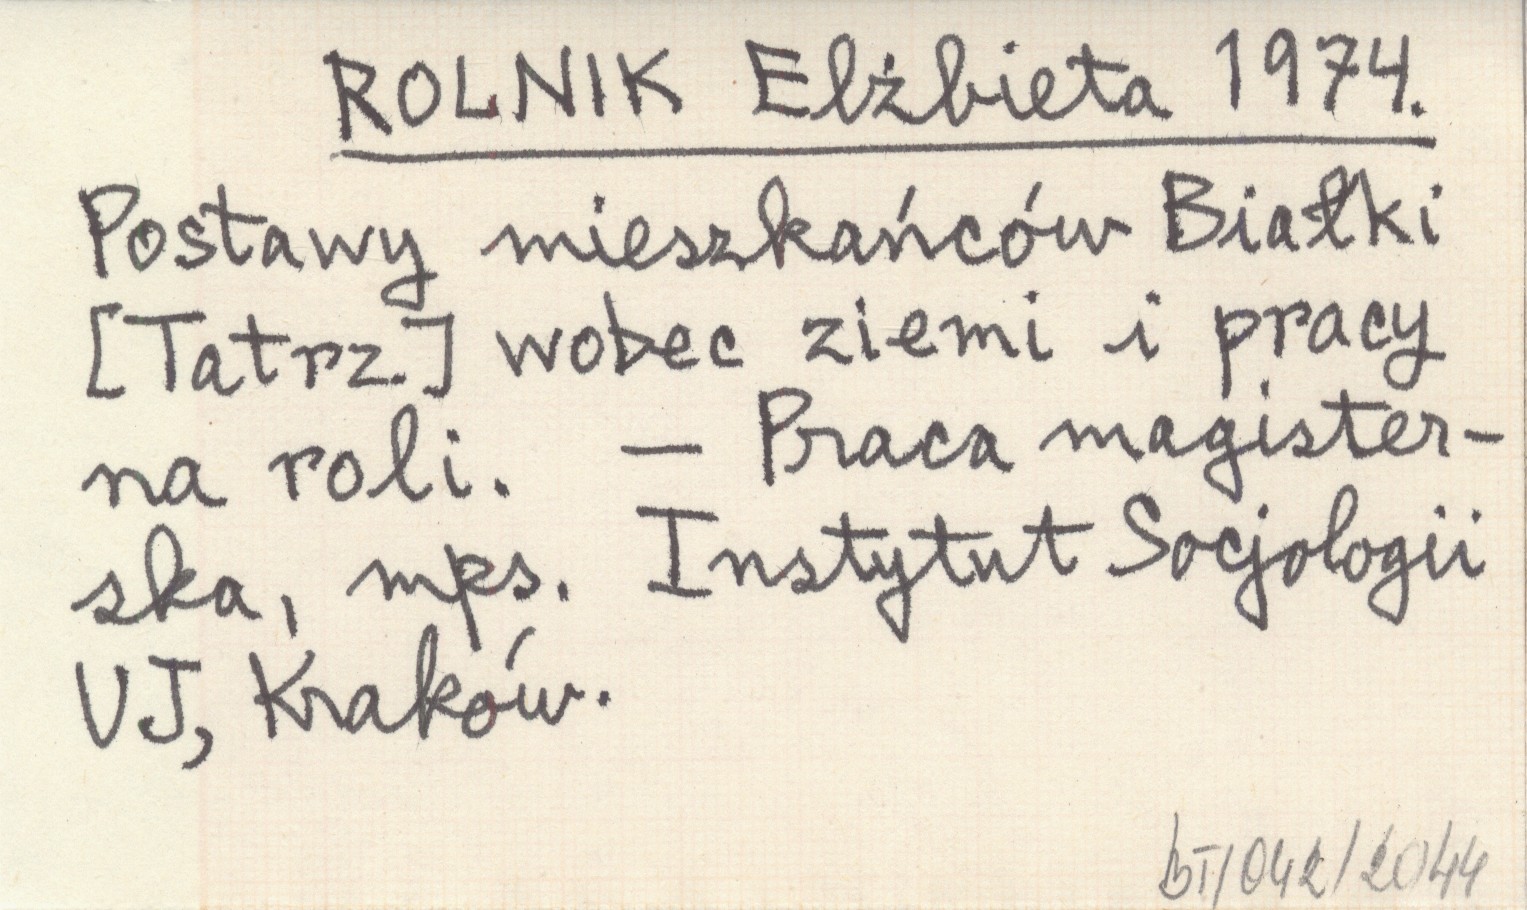 ROLNIK Elżbieta 1974.
Postawy mieszkańców Białki
[Tatrz.] wobec ziemi i pracy
na roli. — Praca magister-
ska, mps. Instytut Socjologii
UJ, Kraków.
bT/042/2044